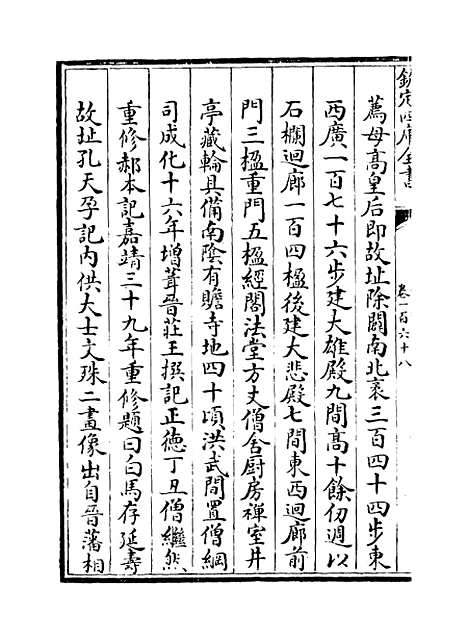 欽定四庫全書
卷一百六十八
薦母高皇后即故址除闢南北袤三百四十四步東
西廣一百七十六步建大雄殿九間高十餘仞週以
石欄迴廊一百四楹後建大悲殿七間東西迴廊前
門三楹重門五楹經閣法堂方丈僧舍厨房禪室井
亭藏輪具備南隂有贍寺地四十頃洪武間置僧綱
司成化十六年增葺晉莊王撰記正德丁丑僧繼然
重修郝本記嘉靖三十九年重修題曰白馬存延壽
故址孔天孕記内供大士文殊二畫像出自晉藩相